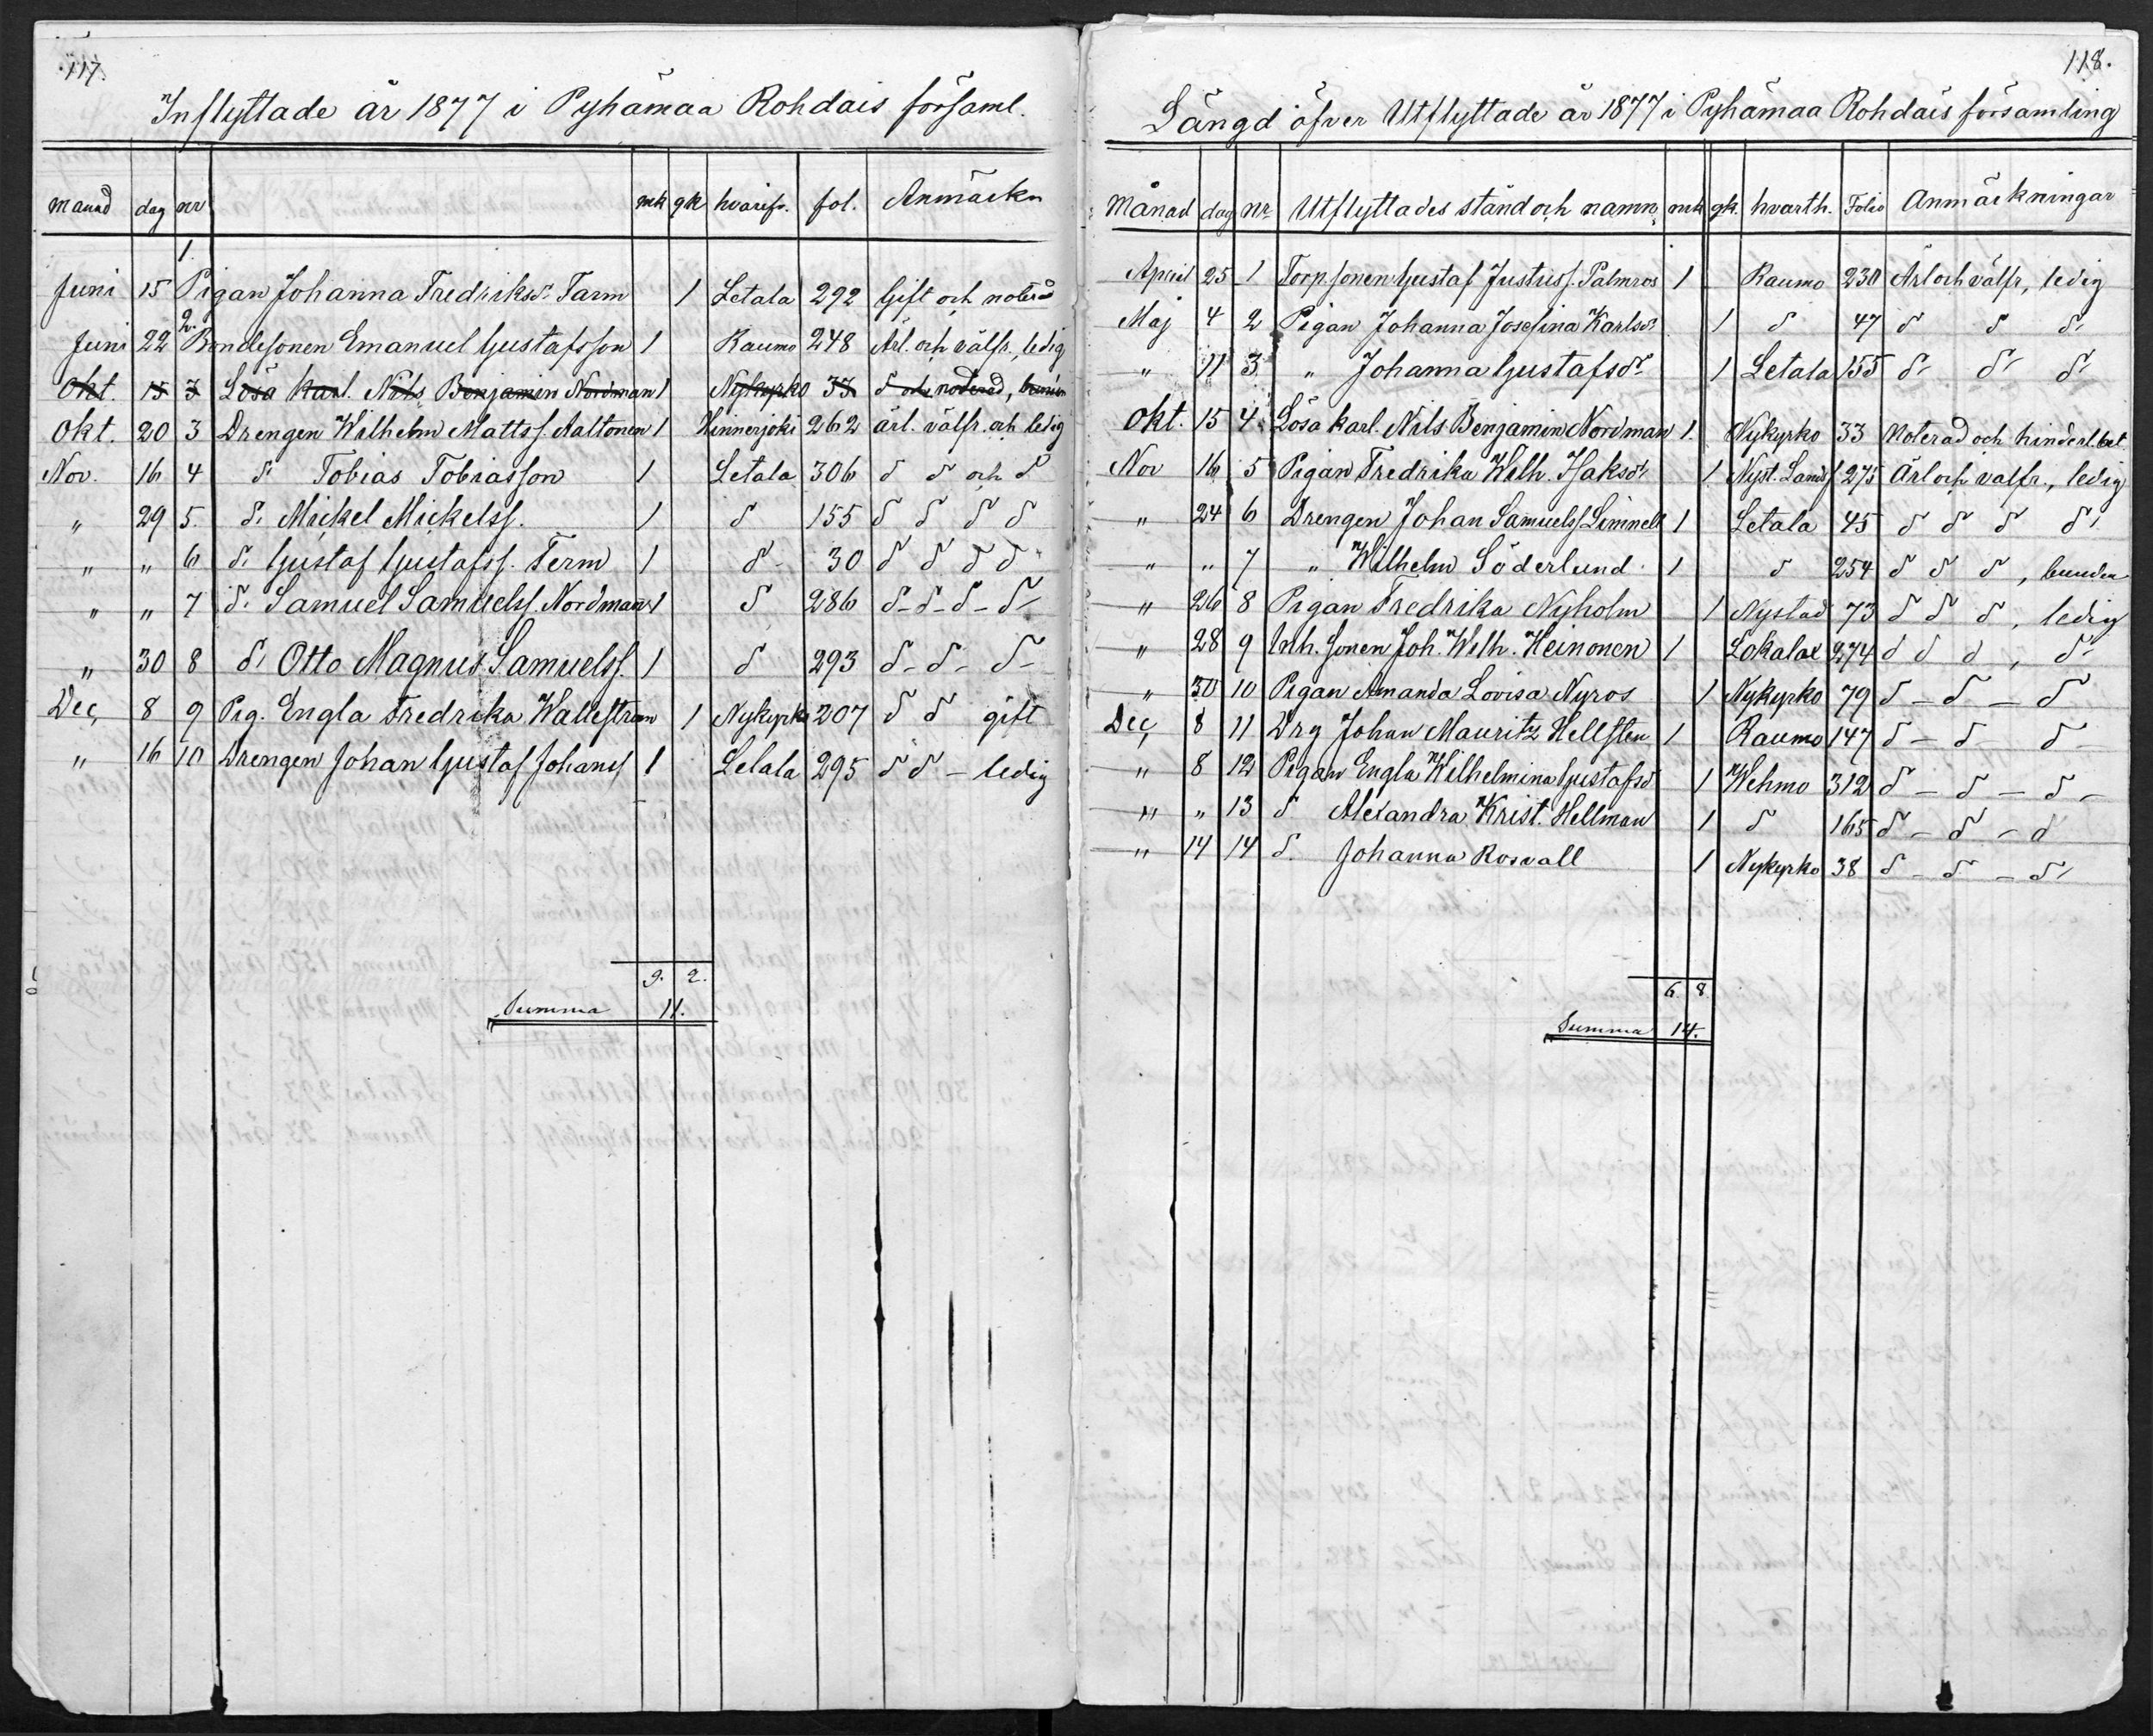 117.
Inflyttade år 1877 i Pyhämaa Rohdais församl.
månad dag nr mk qk hvarifr. fol. Anmärkn
1.
Juni 15 Pigan Johanna Fredriksdr Tarm 1 Letala 292 Gift och noterad
2.
Juni 22 Bondesonen Emanuel Gustafsson 1 Raumo 248 Ärl. och välfr., ledig
Okt. 15 3 Lösa karl. Nils Benjamin Nordman 1 Nykyrko 33 d och noterad,
Okt. 20 3 Drengen Wilhelm Mattss. Aaltonen 1 Hinnerjoki 262 ärl. välfr. och ledig
Nov. 16 4 d. Tobias Tobiasson 1 Letala 306 d d och d
" 29 5. d. Mickel Mickelss. 1 d 155 d d d d
" " 6 d. Gustaf Gustafss. Term 1 d - 30 d d d d
" " 7 d. Samuel Samuelss. Nordman 1 d 286 d - d - d - d
" 30 8 d. Otto Magnus Samuelss. 1 d 293 d - d - d -
Dec, 8 9 Pig. Engla Fredrika Wallestrom 1 Nykyrko 207 d d gift
" 16 10 Drengen Johan Gustaf Johanss 1 Letala 295 d d - ledig
9. 2.
Summa 11.
118.
Längd öfver Utflyttade år 1877 i Pyhämaa Rohdais församling
Månad dag nr. Utflyttades stånd och namn mk qk. hvarth. Folio Anmärkningar
April 25 1 Torp. sonen Gustaf Justuss. Palmros 1 Raumo 230 Ärl och välfr, ledig
Maj 4 2 Pigan Johanna Josefina Karlsdr 1 d 47 d d d
" 11 3 " Johanna Gustafsdr 1 Letala 155 d d d
Okt. 15 4 Lösa karl. Nils Benjamin Nordman 1. Nykyrko 33 Noterad och
Nov 16 5 Pigan Fredrika Wilh. Isaksdr 1 Nyst. Landsf 275 Ärl och välfr., ledig
" 24 6 Drengen Johan Samuelss Limnell 1 Letala 45 d d d d
" " 7 " Wilhelm Söderlund 1 d 254 d d d, bunden
" 26 8 Pigan Fredrika Nyholm 1 Nystad 73 d d d, ledig
" 28 9 Inh. sonen Joh. Wilh. Heinonen 1 Lokalax 274 d d d, d
" 30 10 Pigan Amanda Lovisa Nyros 1 Nykyrko 79 d - d - d
Dec, 8 11 Drg Johan Mauritz Hellsten 1 Raumo 147 d - d d -
" 8 12 Pigan Engla Wilhelmina Gustafsd 1 Wehmo 312 d - d - d -
" " 13 d Alexandra Krist. Hellman 1 d 165 d - d - d
" 14 14 d. Johanna Rosvall 1 Nykyrko 38 d - d - d
6. 8.
Summa 14.